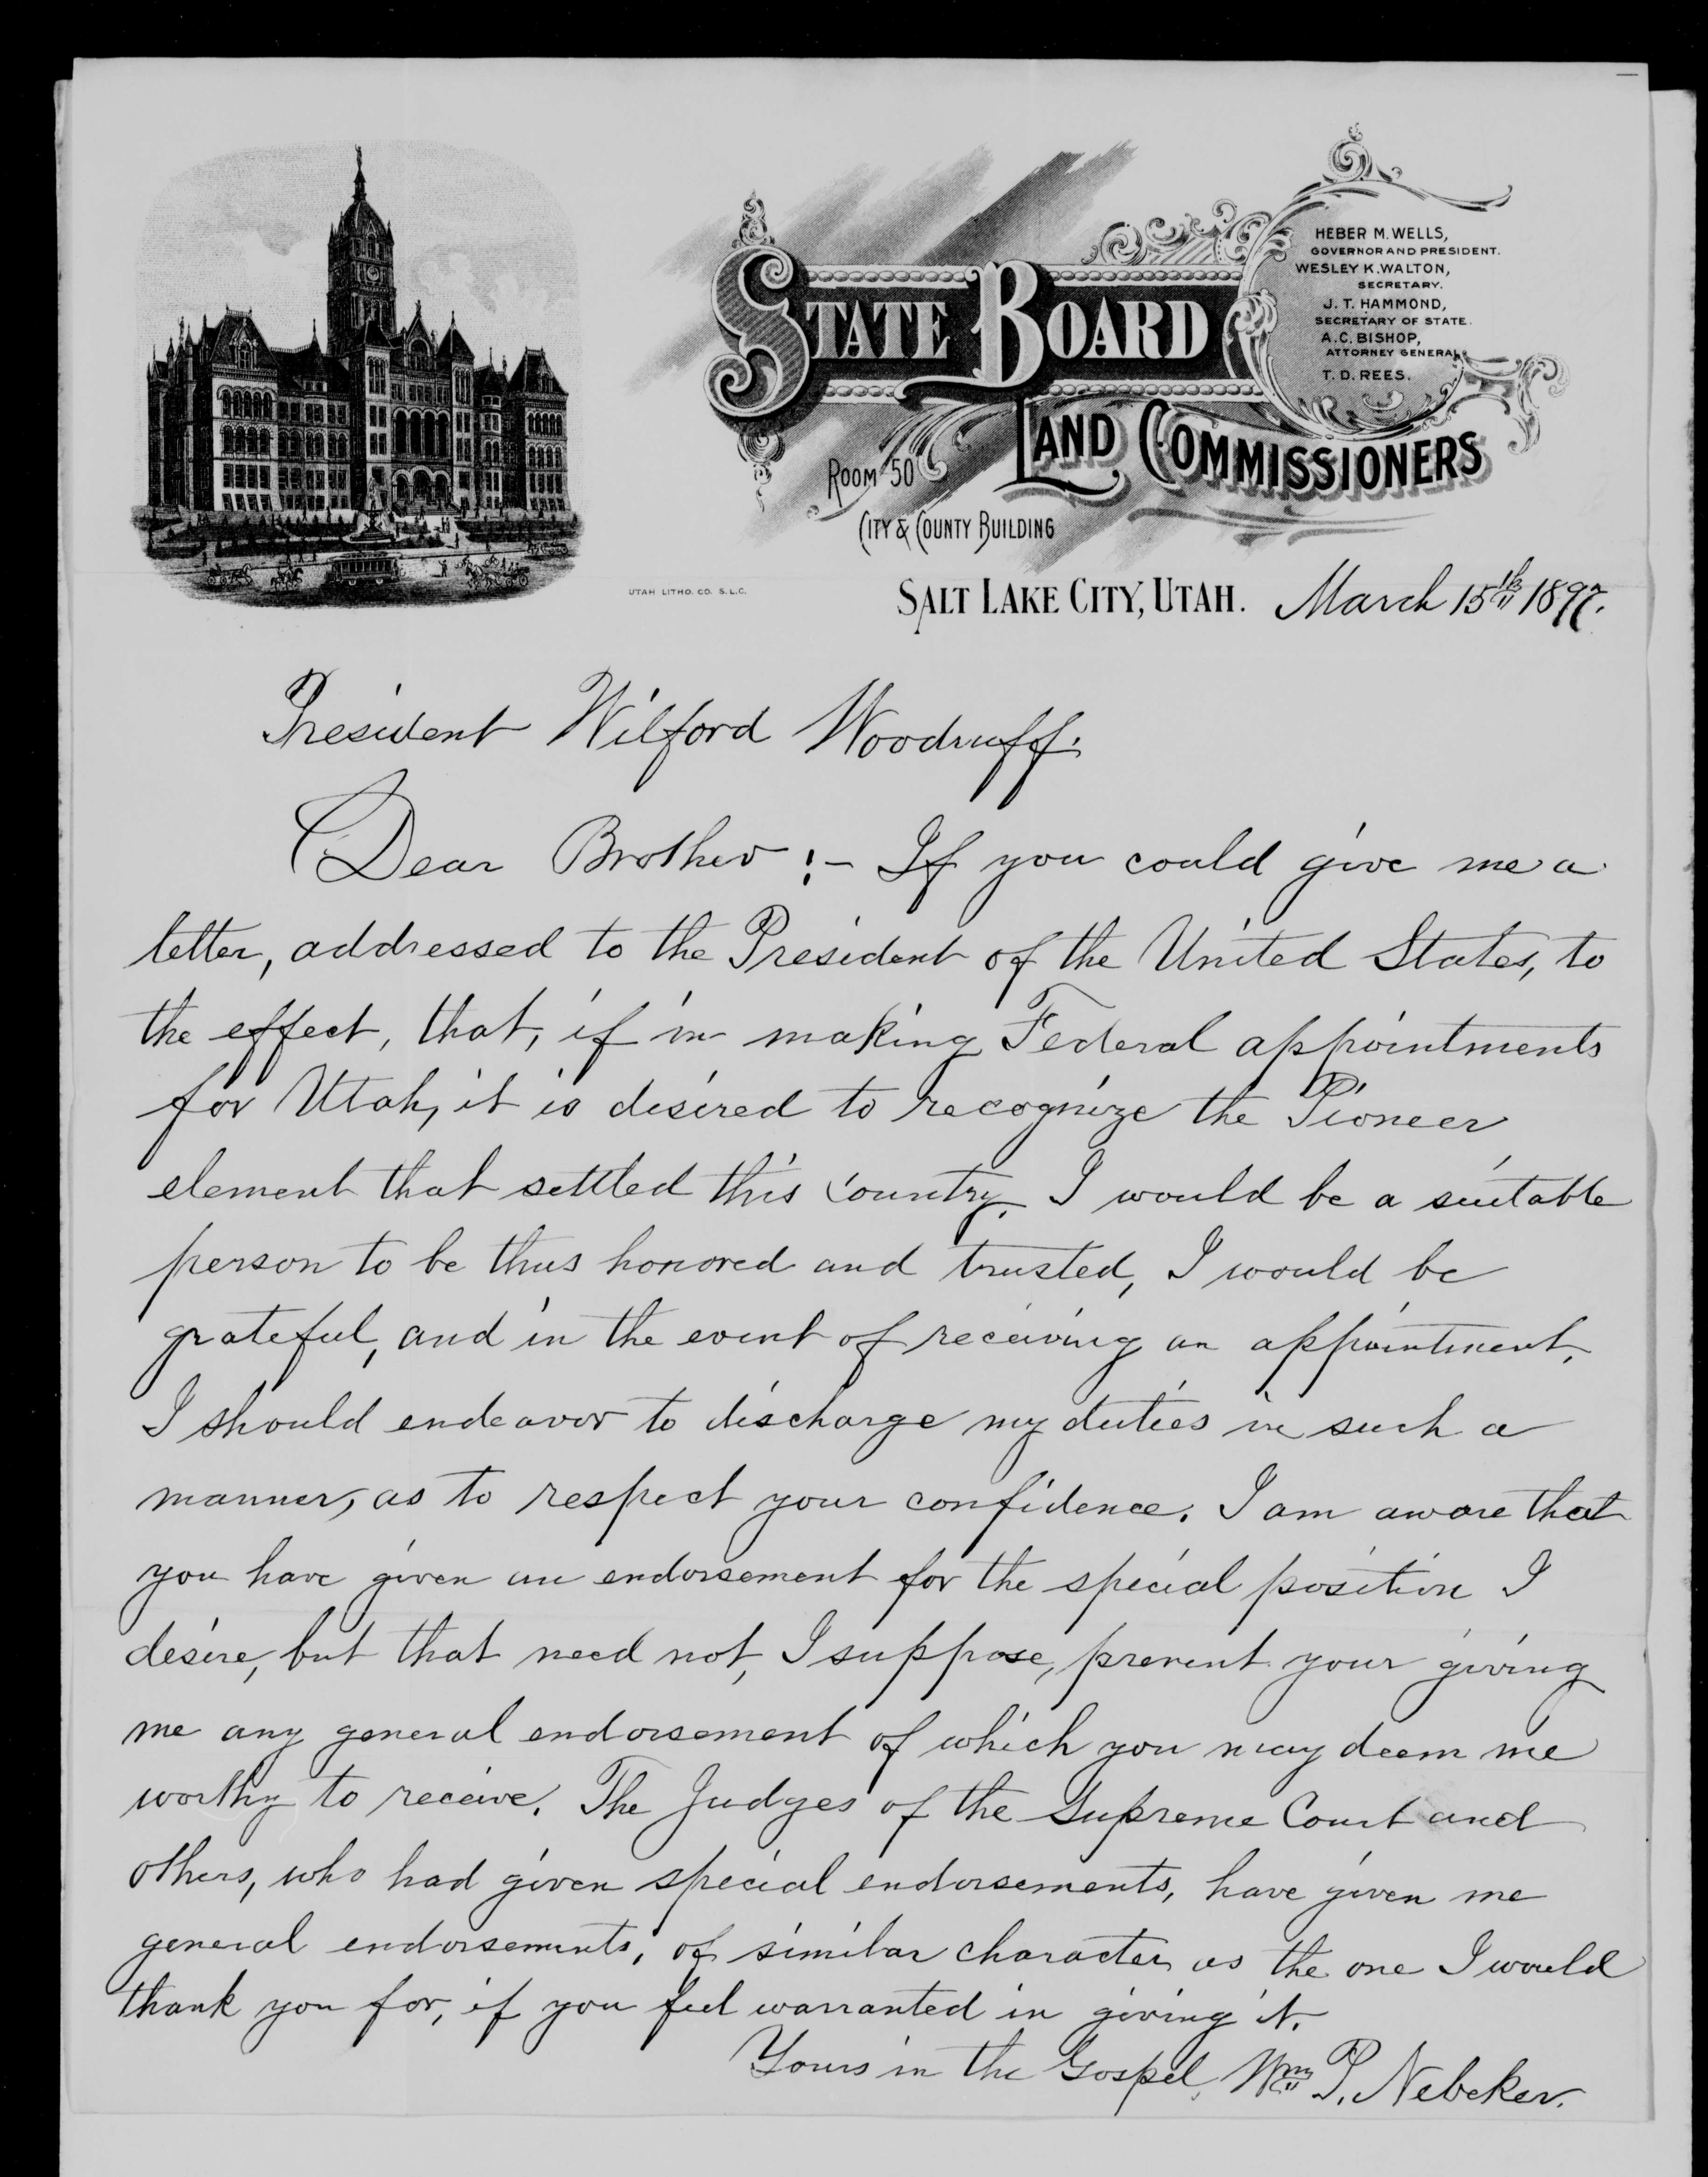 HEBER M. WELLS,
GOVERNOR AND PRESIDENT.
WESLEY K. WALTON,
SECRETARY.
J. T. HAMMOND,
SECRETARY OF STATE.
A. C. BISHOP,
ATTORNEY GENERAL
T. D. REES.
STATE BOARD
LAND COMMISSIONERS
ROOM 50
CITY & COUNTY BUILDING
UTAH LITHO. CO. S.L.C.
SALT LAKE CITY, UTAH. March 15th 1897.
President Wilford Woodruff:
Dear Brother:- If you could give me a
letter, addressed to the President of the United States, to
the effect, that, if in making Federal appointments
for Utah, it is desired to recognize the Pioneer
element that settled this country, I would be a suitable
person to be thus honored and trusted, I would be
grateful, and in the event of receiving an appointment,
I should endeavor to discharge my duties in such a
manner, as to respect your confidence. I am aware that
you have given an endorsement for the special position I
desire, but that need not, I suppose, prevent your giving
me any general endorsement of which you may deem me
worthy to receive. The Judges of the Supreme Court and
others, who had given special endorsements, have given me
general endorsements, of similar character as the one I would
thank you for, if you feel warranted in giving it.
Yours in the Gospel, Wm P. Nebeker.